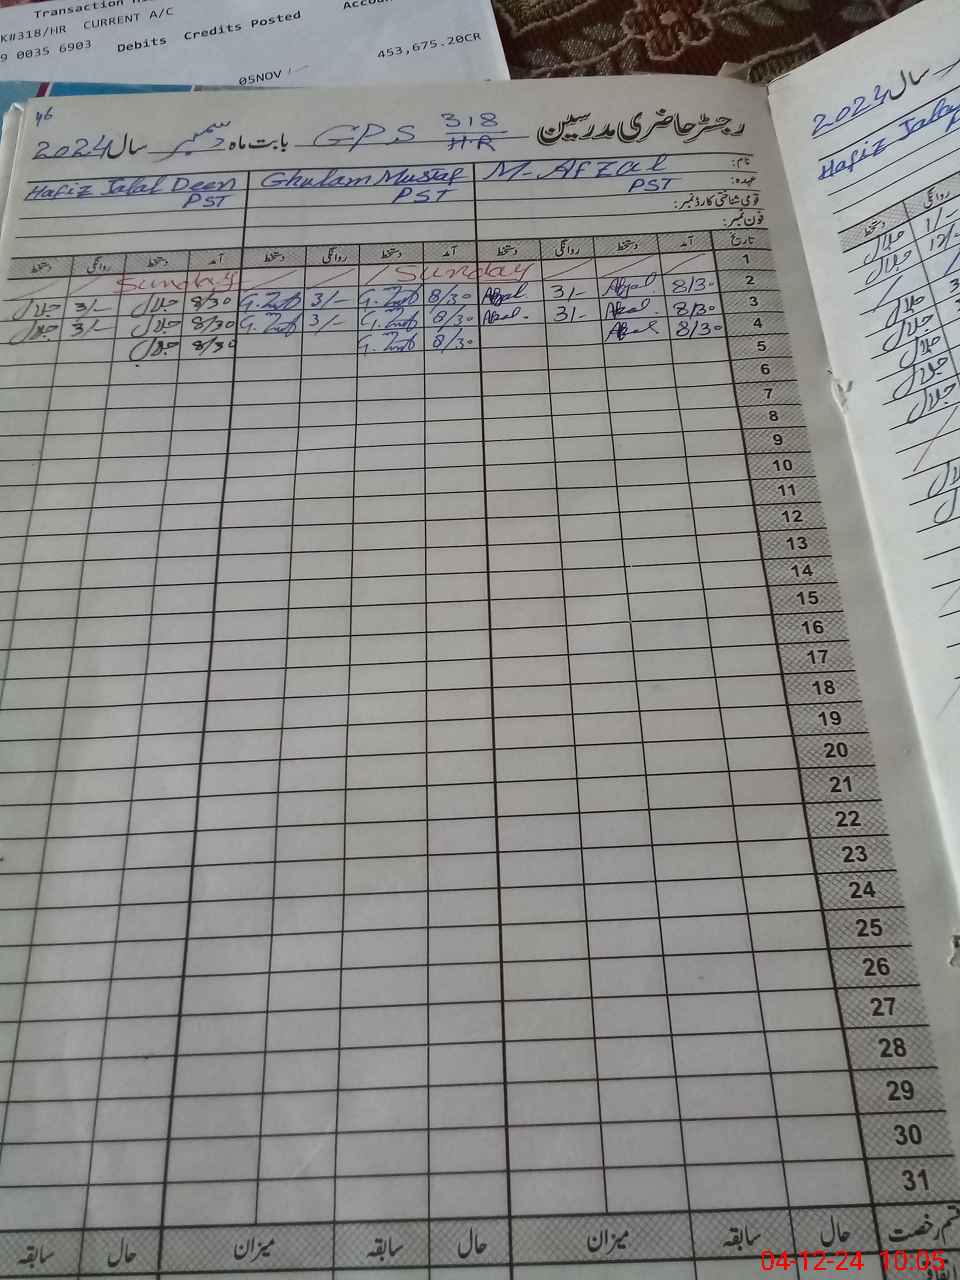 Transaction
K#318/HR CURRENT A/C
9 0035 6903 Debits Credits Posted
453,675.20CR
05NOV
46
رجسٹر حاضری مدرسین GPS 318/HR بابت ماہ دسمبر سال 2024
نام: M. Afzal Ghulam Mustaf Hafiz Jalal Deen
عہدہ: PST PST PST
قومی شناختی کارڈ نمبر:
فون نمبر:
تاریخ آمد دستخط روانگی دستخط آمد دستخط روانگی دستخط آمد دستخط روانگی دستخط
1 Sunday Sunday
2 8/30 Afzal 3/- Afzal 8/30 3/- 8/30 جلال 3/- جلال
3 8/30 3/- 8/30 3/- 8/30 جلال 3/- جلال
4 8/30 8/30 8/30 جلال
5
6
7
8
9
10
11
12
13
14
15
16
17
18
19
20
21
22
23
24
25
26
27
28
29
30
31
قسم رخصت حال سابقہ میزان حال سابقہ میزان حال سابقہ
سال 2024
Hafiz Jalal
روانگی دستخط
1/- جلال
12/- جلال
جلال
جلال
جلال
جلال
جلال
04-12-24 10:05